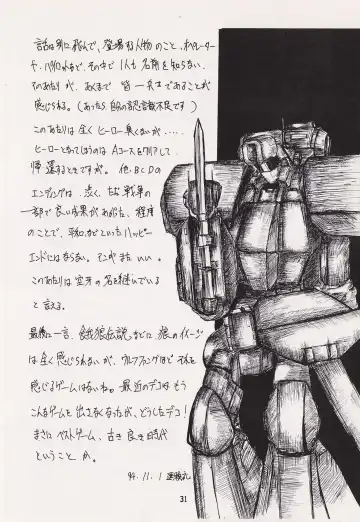 話は別に飛んで、登場する人物のこと。オペレーター
や、パイロットなど、その中で1人も名前を知らない。
そのあたりが、あくまで皆一兵士であることが
感じられる。(あったら、自分の認識不足です)
このあたりは全くヒーロー臭くないが.....
ヒーローとなってしまうのはAコースをクリアして
帰還するときですが。他、B・C・Dの
エンディングは、渋く、ただ戦争の
一部で良い成果があがった、程度
のことで、平和などといったハッピー
エンドにはならない。そこがまたいい。
このあたりは空牙の名を継いでいる
と言える。
最後に一言、餓狼伝説などに狼のイメージ
は全く感じられないが、ウルフファングほどそれを
感じるゲームはないね。最近のデコはもう
こんなゲームを出さなくなったが、どうしたデコ!
まさにベストゲーム、古き良き時代
ということか。
94. 11. 1
31